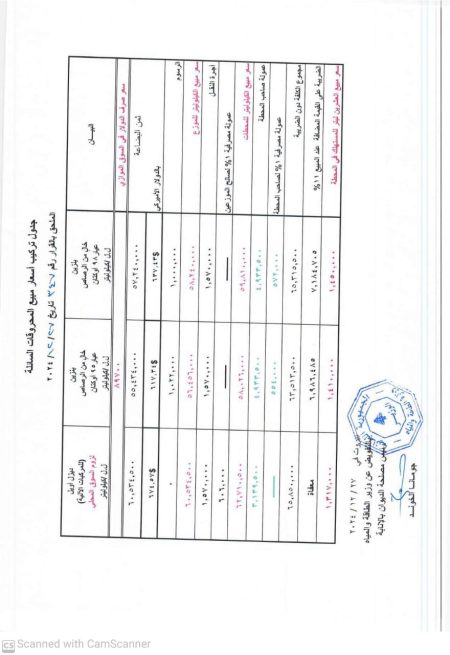 جدول تركيب اسعار مبيع المحروقات السائلة
الملحق بالقرار رقم تاريخ ٢٠٢٤/١٢/٢٧
البيـــان
بنزين
عيار ٩٨ أوكتان
خالي من الرصاص
ل.ل/كيلوليتر
بنزين
عيار ٩٥ أوكتان
خالي من الرصاص
ل.ل/كيلوليتر
ديزل أويل
(للمركبات الآلية)
لزوم السوق المحلي
ل.ل/كيلوليتر
سعر صرف الدولار في السوق الموازي ٨٩٧٠٠
ثمن البضاعة ٥٧,٢٤٠,٠٠٠ ٥٥,٤٣٤,٠٠٠ ٦٠,٥٣٤,٥٠٠
بالدولار الأميركي ٦٣٧.٤٣$ ٦١٧.٣٤$ ٦٧٤.٥٧$
الرسوم ١,٠٠٠,٠٠٠ ١,٠٢٢,٠٠٠ ٠
سعر مبيع الكيلوليتر للموزع ٥٨,٢٤٠,٠٠٠ ٥٦,٤٥٦,٠٠٠ ٦٠,٥٣٤,٥٠٠
أجرة النقل ١,٥٧٠,٠٠٠ ١,٥٧٠,٠٠٠ ١,٥٧٠,٠٠٠
عمولة مصرفية ١% لصالح الموزعين ٦٠٦,٠٠٠
سعر مبيع الكيلوليتر للمحطات ٥٩,٨١٠,٠٠٠ ٥٨,٠٢٦,٠٠٠ ٦٢,٧١٠,٥٠٠
عمولة صاحب المحطة ٤,٩٣٣,٥٠٠ ٤,٩٣٣,٥٠٠ ٣,١٣٩,٥٠٠
عمولة مصرفية ١% لصاحب المحطة ٥٧٢,٠٠٠ ٥٥٤,٠٠٠
مجموع الكلفة دون الضريبة ٦٥,٣١٥,٥٠٠ ٦٣,٥١٣,٥٠٠ ٦٥,٨٥٠,٠٠٠
الضريبة على القيمة المضافة عند المبيع ١١% ٧,١٨٤,٧٠٥ ٦,٩٨٦,٤٨٥ معفاة
سعر مبيع العشرين ليتر للمستهلك في المحطة ١,٤٥٠,٠٠٠ ١,٤١٠,٠٠٠ ١,٣١٧,٠٠٠
بيروت في ٢٠٢٤/١٢/٢٧
بالتفويض عن وزير الطاقة والمياه
رئيس مصلحة الديوان بالإنابة
CS Scanned with CamScanner